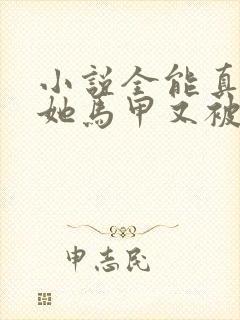 小说全能真
她马甲又被
申志民